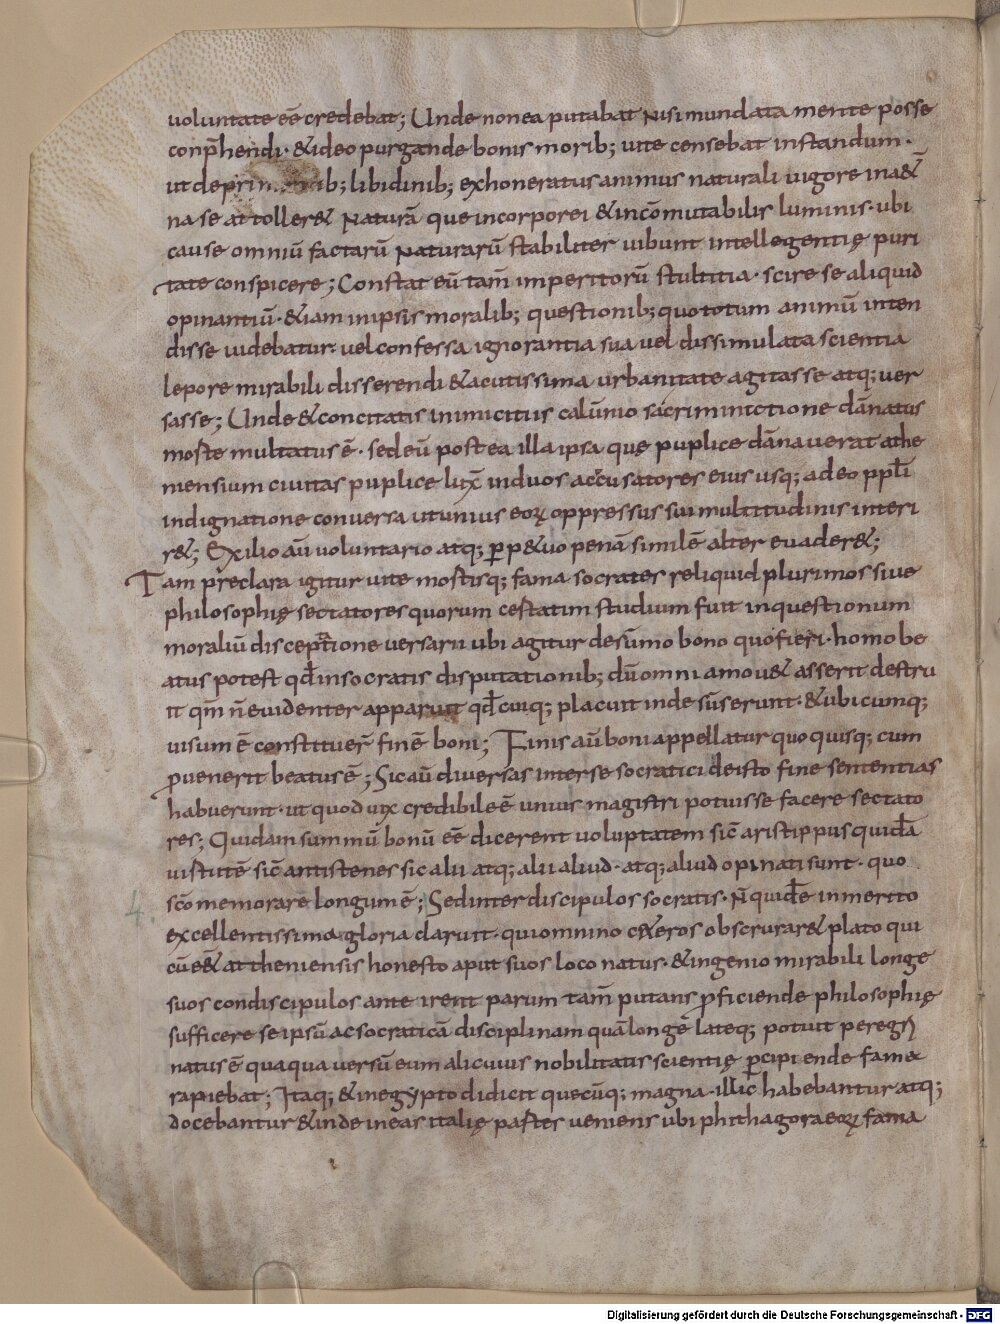 uoluntate eē credebat; Unde non ea putabat nisi mundata mente posse
conp̄hendi· & ideo purgande bonis morib; uite censebat instandum·
ut deprim libidinib; exhoneratus animus naturali uigore in a&̄
na se attoller& naturā que incorporei & incōmutabilis luminis· ubi
cause omniū factarū naturarū stabiliter uibunt intellegentię puri
tate conspicere; Constat eū tam̄ imperitorū stultitia· scire se aliquid
opinantiū· & iam in ipsis moralib; questionib; quo totum animū inten
disse uidebatur· uel confessa ignorantia sua uel dissimulata scientia
lepore mirabili disserendi & acutissima urbanitate agitasse atq; uer
sasse; Unde & concitatis inimicitiis calūnio sacriminictione dānatus
morte multatus ē· sed eū postea illa ipsa que puplice dānauerat athe
niensium ciuitas puplice lux̄ in duos accusatores eius usq; adeo ppłi
indignatione conuersa ut unius eoꝝ oppressus sui multitudinis interi
r&; Exilio aū uoluntario atq; ꝑp&uo penā similē alter euader&;
Tam preclara igitur uite mortisq; fama socrater reliquid plurimos siue
philosophię sectatores quorum certatim studium fuit in questionum
moraliū disceptatione uersarii ubi agitur de sūmo bono quo fieri· homo be
atus potest qđ in socratis disputationib; dū omni amou& asserit destru
it qm̄ n̄ euidenter apparuit qđ cuiq; placuit inde sūserunt· & ubicumq;
uisum ē constituer̄ finē boni; Finis aū boni appellatur quo quisq; cum
ꝑuenerit beatus ē; Sic aū diuersas inter se socratici de isto fine sententias
habuerunt· ut quod uix credibile ē unius magistri potuisse facere sectato
res; Quidam summū bonū eē dicerent uoluptatem sic̄ aristippus quidā
uirtutē sic̄ antistenes sic alii atq; alii aliud· atq; aliud opinati sunt· quo
sc̄o memorare longum ē; Sed inter discipulos socratis· n̄ quidē inmerito
4.
excellentissima gloria claruit· qui omnino c&eros obscurar& plato qui
cū e&̄ attheniensis honesto aput suos loco natus· & ingenio mirabili longe
suos condiscipulos ante irent parum tam̄ putans ꝓficiende philosophię
sufficere se ipsū ac socraticā disciplinam quā longē lateq; potuit peregri
natus ē quaqua uersū eum alicuius nobilitatis scientię ꝑcipiende fama
rapiebat; Itaq; & in egypto didicit quecūq; magna· illic habebantur atq;
docebantur & inde in eas italię partes ueniens ubi phithagoraeoꝝ fama
Digitalisierung gefördert durch die Deutsche Forschungsgemeinschaft - DFG